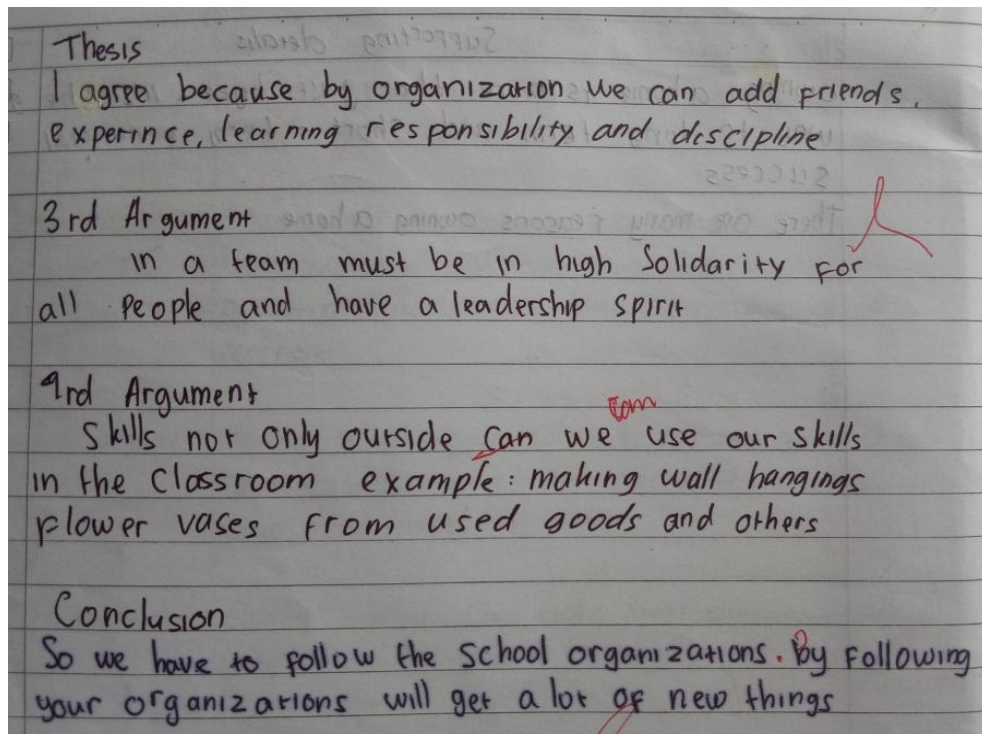 Thesis
I agree because by organization we can add friends,
experince, learning responsibility and discipline
3rd Argument
in a team must be in high Solidarity For
all people and have a leadership spirit
4rd Argument
can
Skills not only outside can we use our skills
in the classroom example: making wall hangings
flower vases from used goods and others
Conclusion
So we have to follow the school organizations. By following
your organizations will get a lot of new things